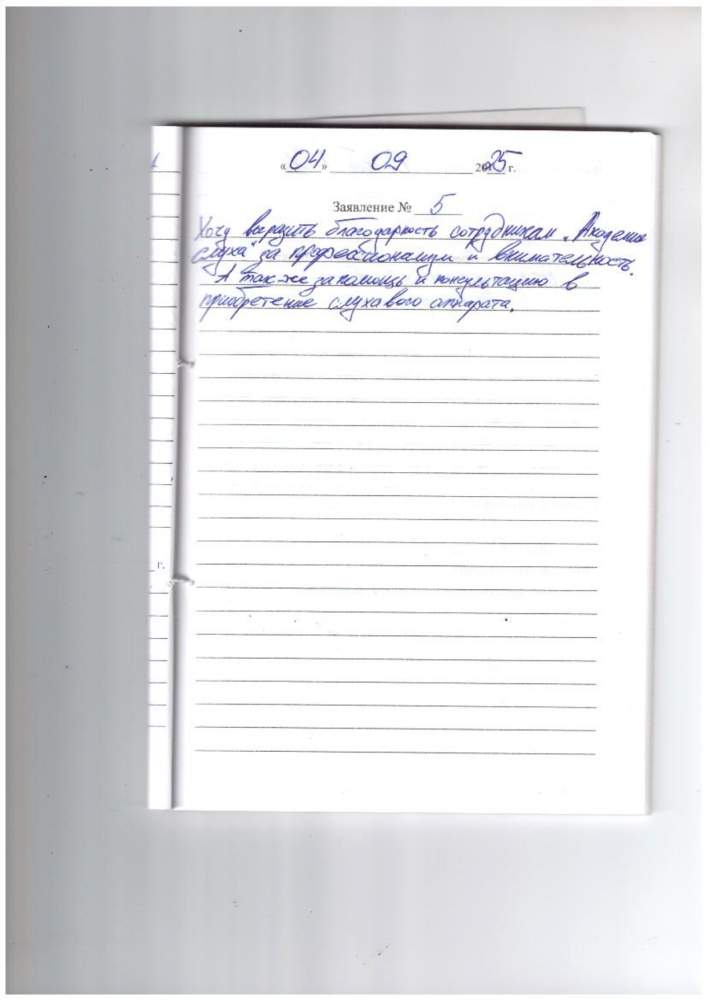 «04» 09 2025 г.
Заявление № 5
Хочу выразить благодарность сотрудникам „Академии
слуха" за профессионализм и внимательность.
А так-же за помощь и консультацию в
приобретение слухавого аппарата.
г.